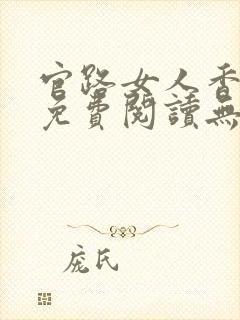 官路女人香
免費閱讀無
龐氏